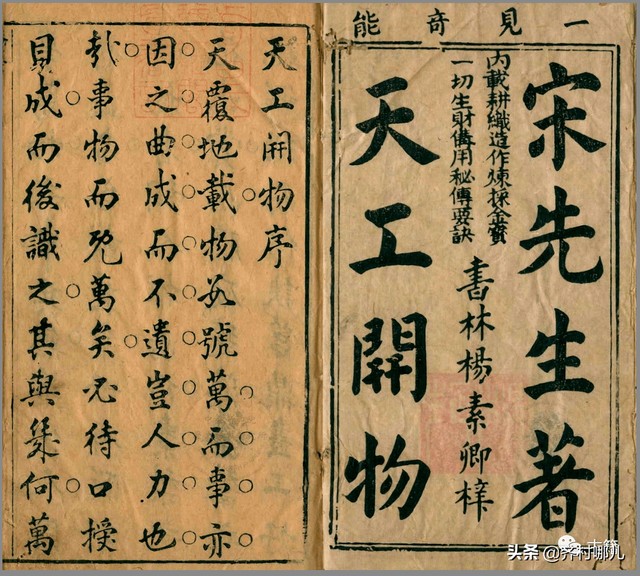 一見奇能
宋先生著
內載耕織造作煉採金寶
一切生財備用秘傳要訣
書林楊素卿梓
天工開物
天工開物序
天覆地載物數號萬而事亦
因之曲成而不遺豈人力也
哉事物而既萬矣必待口授
目成而後識之其與幾何萬
头条